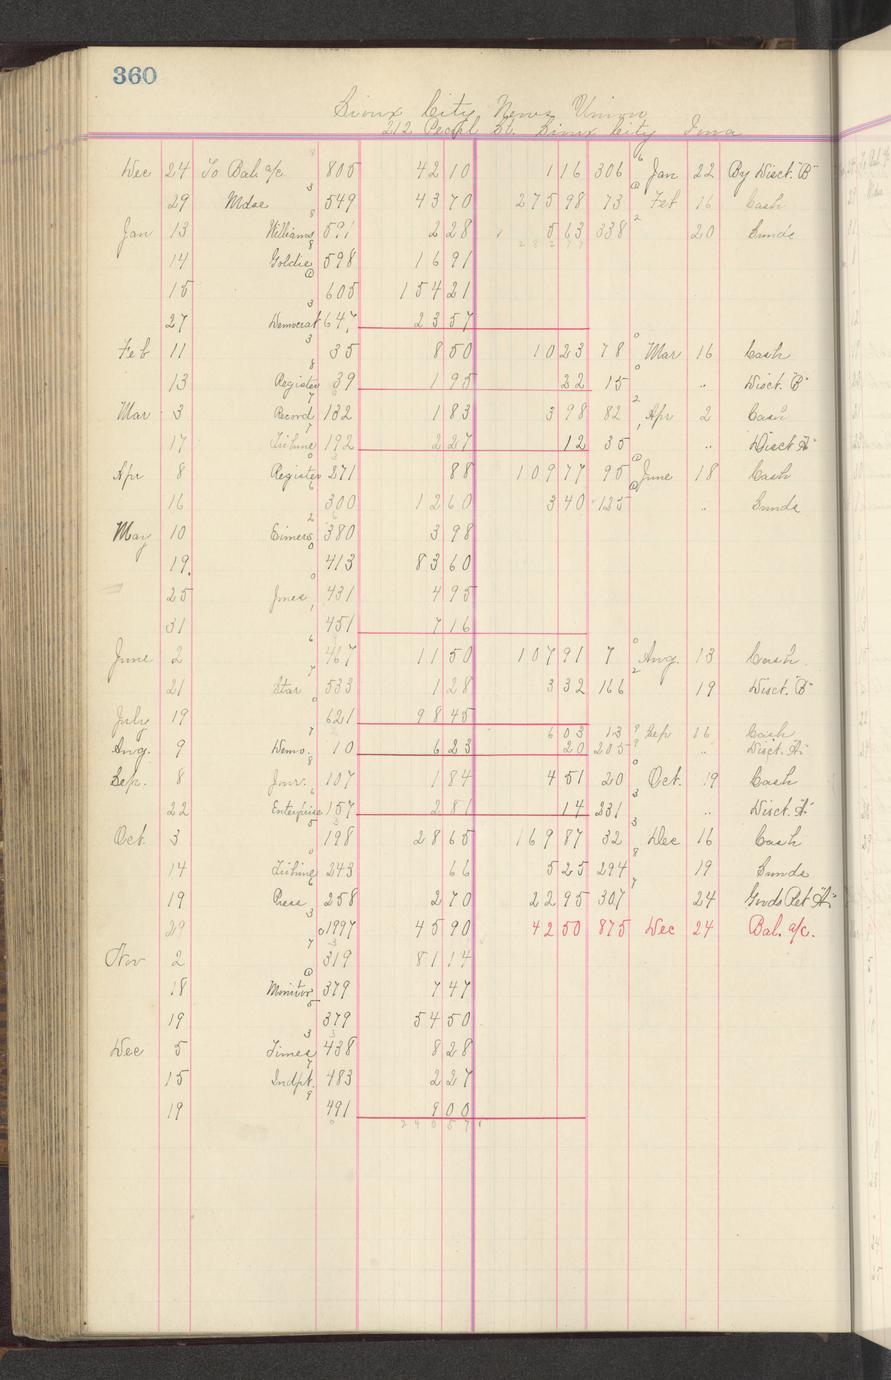 360
Sioux City News Union
212 Pearl St. Sioux City Iowa
Dec 24 To Bal. a/c 805 42 10 1 16 306 Jan 22 By Disct. "B"
29 Mdse 549 43 70 275 98 73 Feb 16 Cash
Jan 13 Williams 591 2 28 5 63 338 20 Sunds
14 Goldie 598 16 91
15 605 154 21
27 Democrat 647 23 57
Feb 11 35 8 50 10 23 78 Mar 16 Cash
13 Register 39 1 95 22 15 " Disct. "B"
Mar 3 Record 132 1 83 3 98 82 Apr 2 Cash
17 Tribune 192 2 27 12 35 " Disct "A"
Apr 8 Register 271 88 109 77 95 June 18 Cash
16 300 12 60 3 40 125 " Sunds
May 10 Eimers 380 3 98
19 413 83 60
25 Jones 431 4 95
31 451 7 16
June 2 467 11 50 107 91 7 Aug. 13 Cash
21 Star 533 1 28 3 32 166 19 Disct. "B"
July 19 621 98 45
6 03 13 Sep 16 Cash
Aug. 9 Demo. 10 6 23 20 205 " Disct. "A"
Sep. 8 Jour. 107 1 84 4 51 20 Oct. 19 Cash
22 Enterprise 157 2 81 14 231 " Disct. "A"
Oct. 3 198 28 65 169 87 32 Dec 16 Cash
14 Tribune 243 66 5 25 294 19 Sunds
19 Press 258 2 70 22 95 307 24 Goods Ret "A"
29 1997 45 90 42 50 875 Dec 24 Bal. a/c.
Nov 2 319 81 14
18 Monitor 379 7 47
19 379 54 50
Dec 5 Times 438 8 28
15 Indpt. 483 2 27
19 491 9 00
240 57